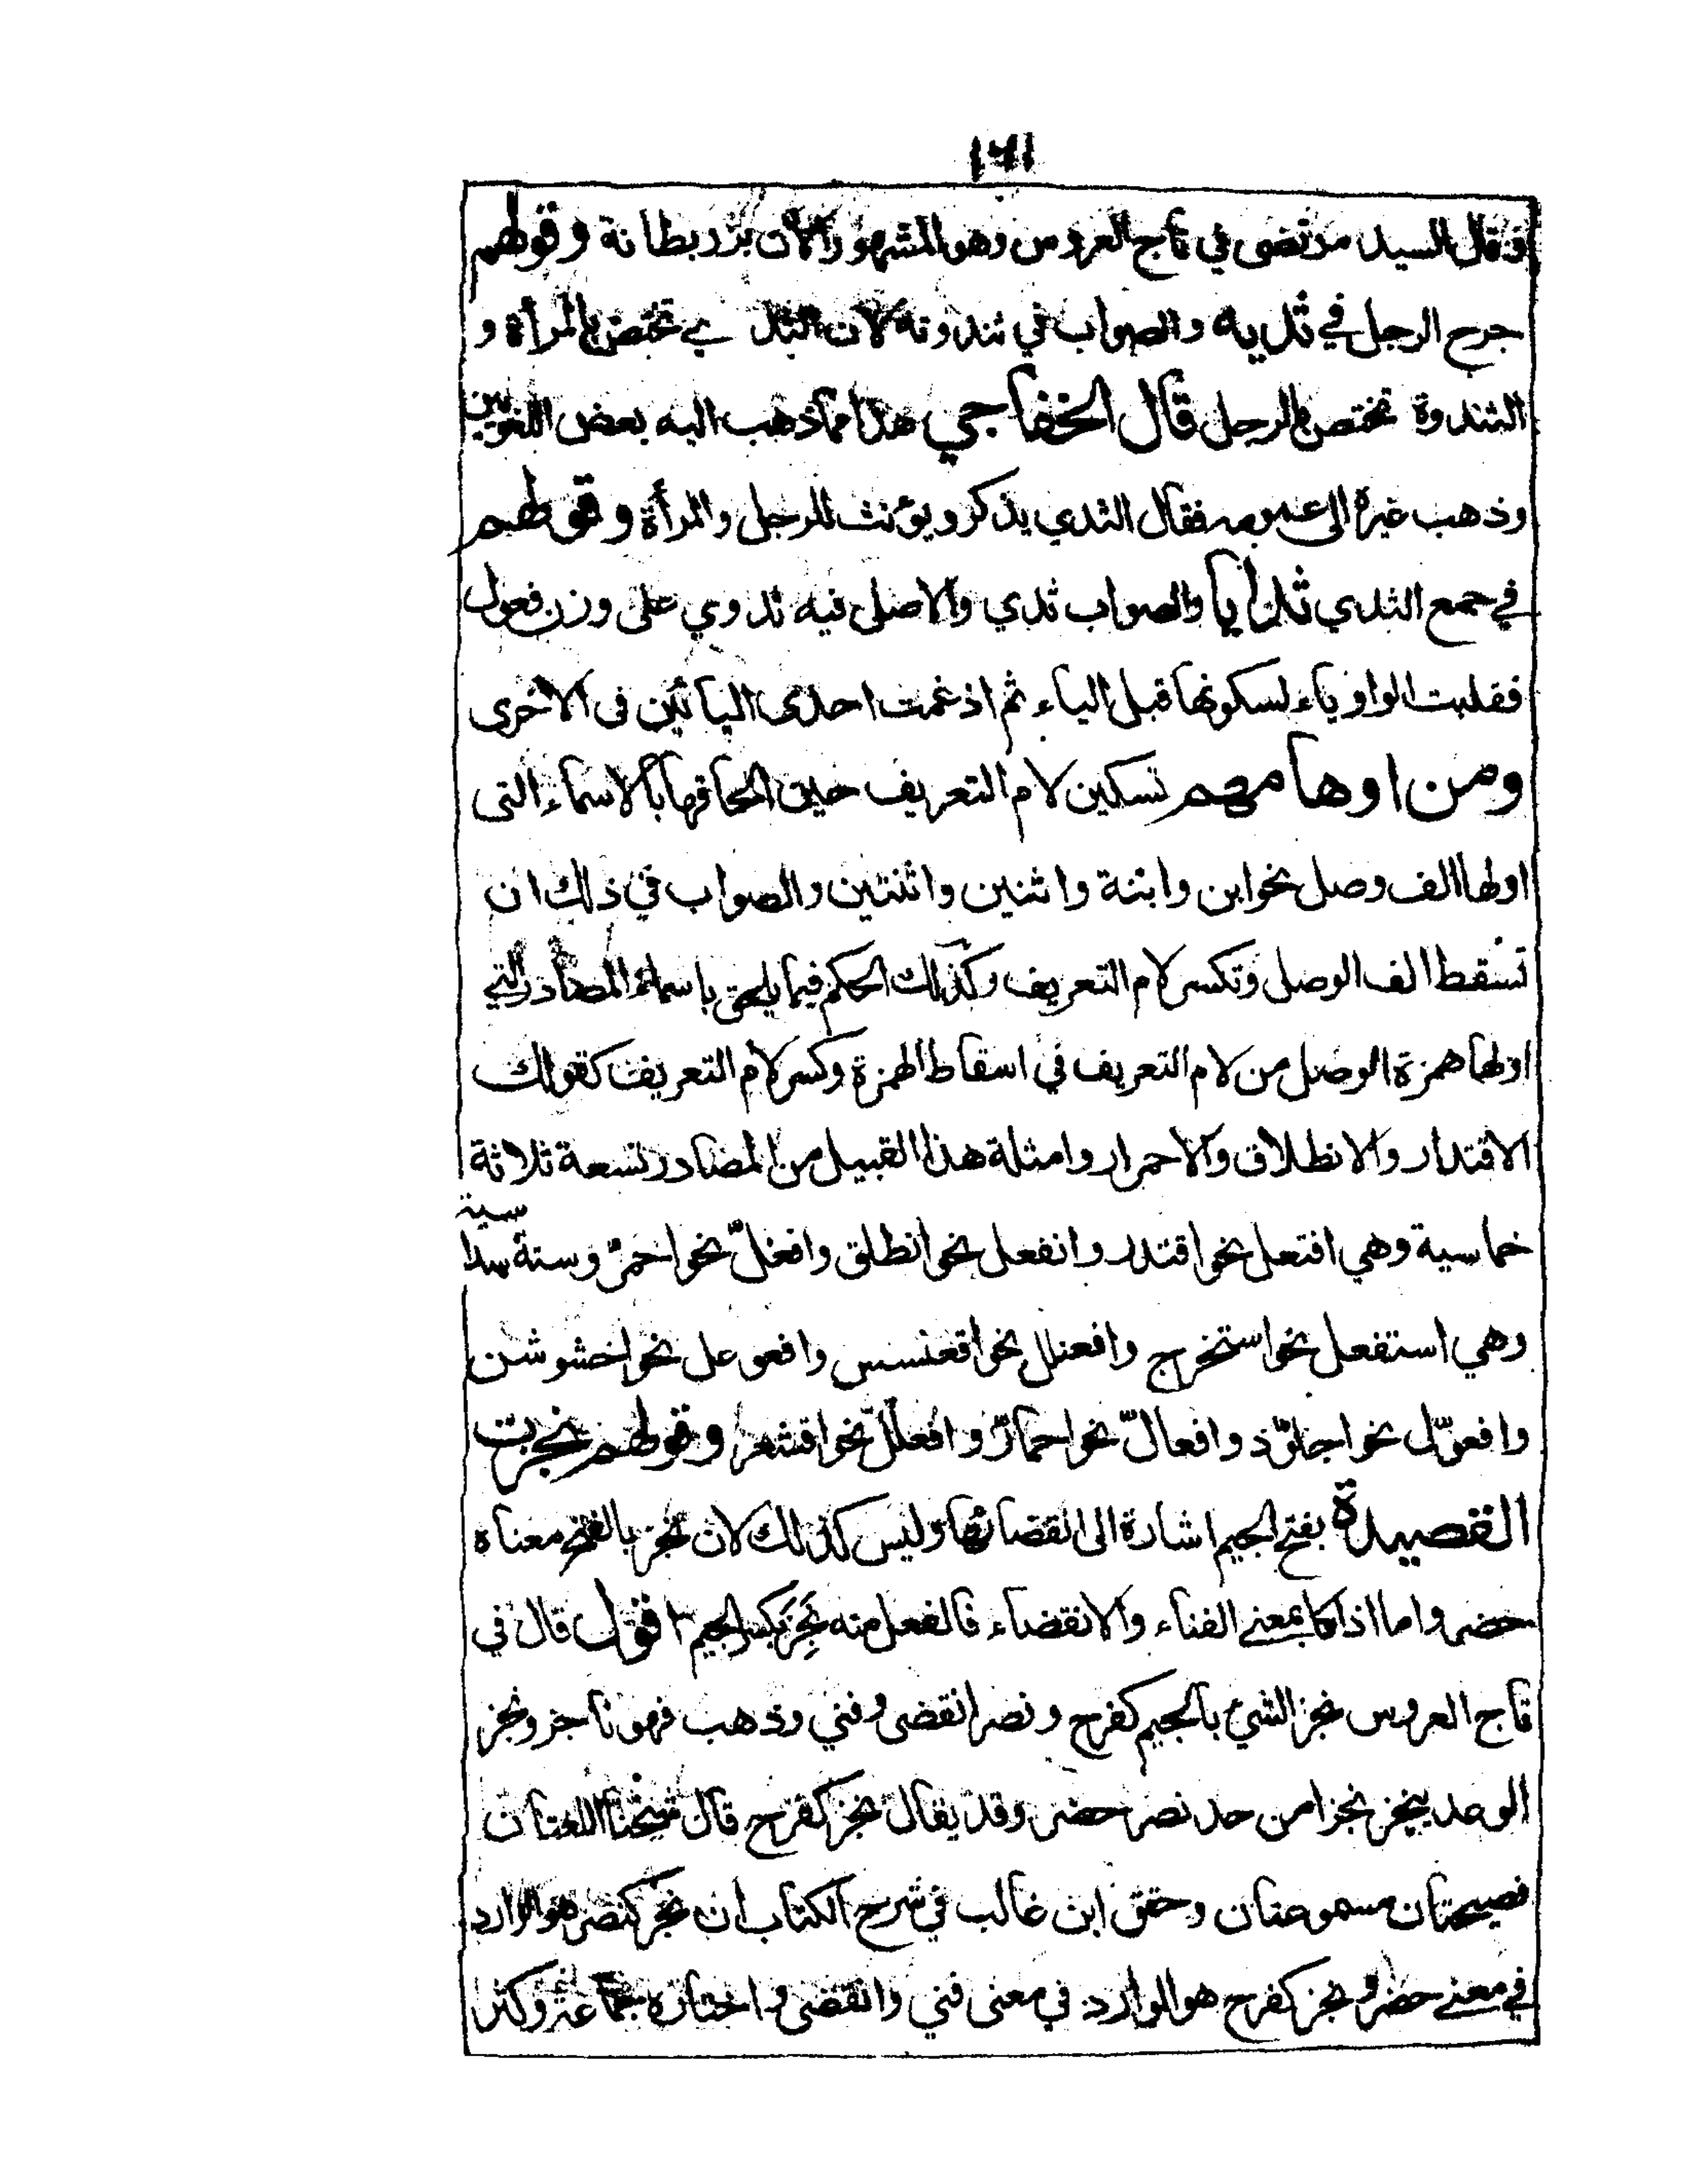 ١٦١
فقال السيد مرتضى في تاج العروس وهو المشهور الآن بزربطانة وقولهم
جرح الرجل في ثدييه والصواب في ثندوته لان الثدي تختص بالمرأة و
الثندوة تختص بالرجل قال الخفاجي هذا مما ذهب اليه بعض اللغويين
وذهب غيره الى عمومه فقال الثدي يذكر ويؤنث للرجل والمرأة وقولهم
في جمع الثدي ثدايا والصواب ثدي والاصل فيه ثدوي على وزن فعول
فقلبت الواو ياء لسكونها قبل الياء ثم ادغمت احدى اليائين فى الاخرى
ومن اوهامهم تسكين لام التعريف حين الحاقها بالاسماء التى
اولها الف وصل نحو ابن وابنة واثنين واثنتين والصواب في ذلك ان
تسقط الف الوصل وتكسر لام التعريف وكذلك الحكم فيما يلحق باسماء المصادر التي
اولها همزة الوصل من لام التعريف في اسقاط الهمزة وكسر لام التعريف كقولك
الاقتدار والانطلاق والاحمرار وامثلة هذا القبيل من المصادر تسعة ثلاثة
خماسية وهي افتعل نحو اقتدر وانفعل نحو انطلق وافعلّ نحو احمرّ وستة سداسية
وهي استفعل نحو استخرج وافعنلل نحو اقعنسس وافعوعل نحو اخشوشن
وافعوّل نحو اجلوّذ وافعالّ نحو احمارّ وافعللّ نحو اقشعر وقولهم نجزت
القصيدة بفتح الجيم اشارة الى انقضائها وليس كذلك لان نجز بالفتح معناه
حضر واما اذا كا بمعنے الفناء والانقضاء فالفعل منه نَجِزَ بكسر الجيم اقول قال في
تاج العروس نجز الشيء بالجيم كفرح ونصر انقضى وفني وذهب فهو ناجز ونجز
الوعد ينجز نجزا من حد نصر حضر وقد يقال نجز كفرح قال شيخنا اللغتان
فصيحتان مسموعتان وحقق ابن غالب في شرح الكتاب ان نجز كنصر هو الوارد
في معنے حضر و نجز كفرح هو الوارد في معنى فني وانقضى واختاره جماعة وكثر